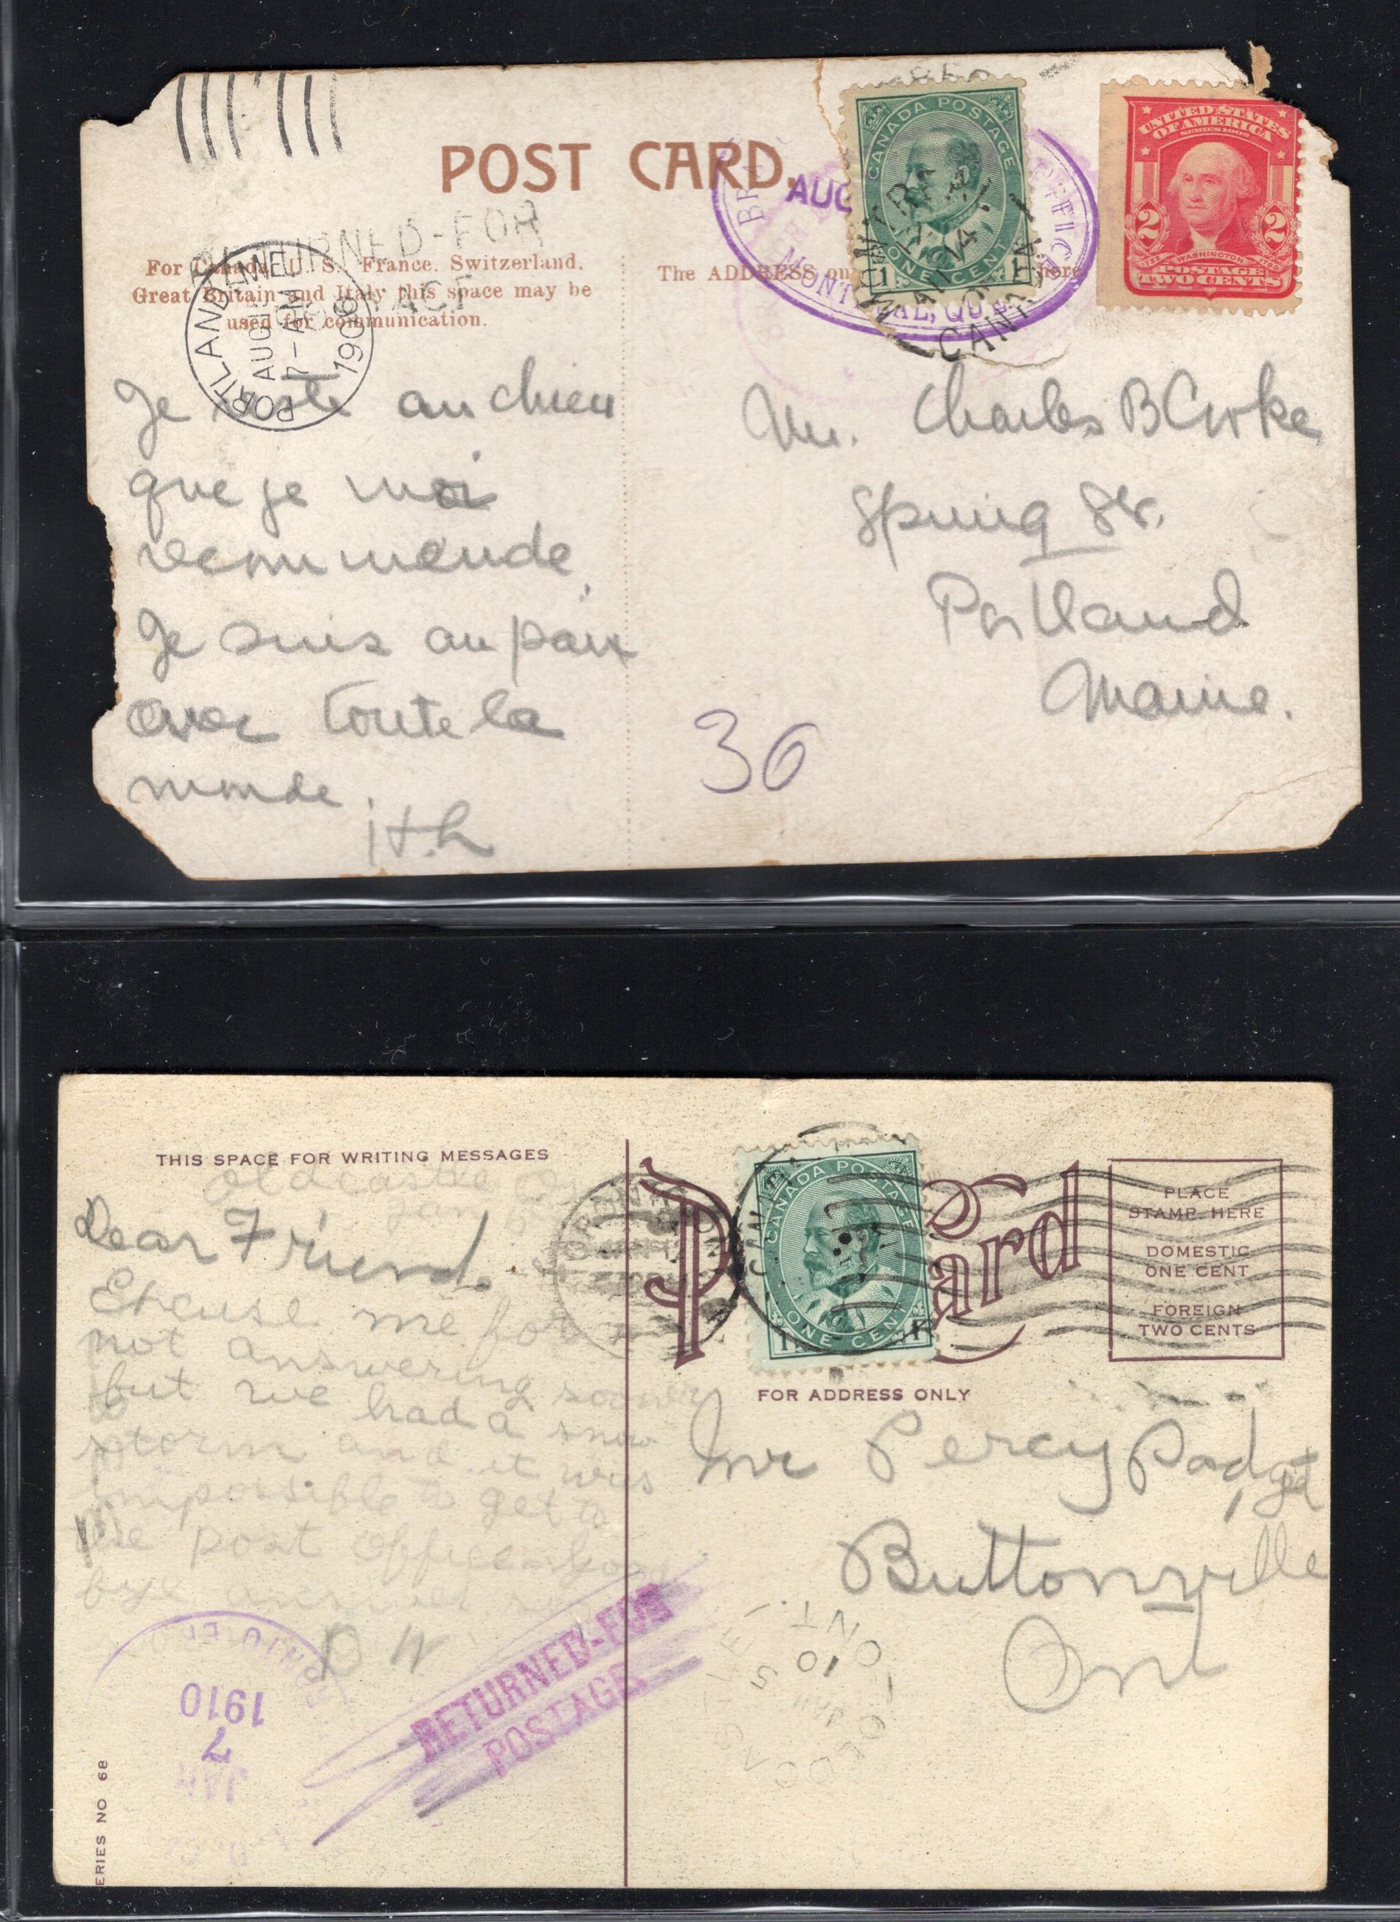 POST CARD.
RETURNED-FOR
POSTAGE
For Canada, U. S. France, Switzerland,
Great Britain and Italy this space may be
used for communication.
The ADDRESS on here
PORTLAND, ME.
AUG
7-AM
1906
AUG
MONTREAL, QUE
CANADA POSTAGE
1 ONE CENT 1
MONTREAL
14
CANADA
UNITED STATES
OF AMERICA
SERIES 1902
2 2
WASHINGTON
POSTAGE
TWO CENTS
Je reste au chien
que je moi
recommende,
Je suis au paix
avec toute la
monde.
Mr. Charles B Cooke
Spring St.
Portland
Maine.
36
THIS SPACE FOR WRITING MESSAGES
Oldcastle On
Jan
Dear Friend.
Excuse me for
not answering sooner
but we had a snow
storm and it was
impossible to get to
the post office Good
bye answer
B W
TORONTO
CANADA POSTAGE
1 ONE CENT 1
Post Card
PLACE
STAMP HERE
DOMESTIC
ONE CENT
FOREIGN
TWO CENTS
FOR ADDRESS ONLY
Mr Percy Padget
Buttonville
Ont
RETURNED-FOR
POSTAGE
OLDCASTLE
JAN 5
10
ONT.
JAN
7
1910
ERIES NO 68